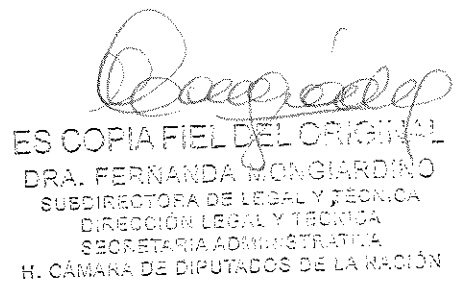 ES COPIA FIEL DEL ORIGINAL
DRA. FERNANDA MONGIARDINO
SUBDIRECTORA DE LEGAL Y TÉCNICA
DIRECCIÓN LEGAL Y TECNICA
SECRETARIA ADMINISTRATIVA
H. CÁMARA DE DIPUTADOS DE LA NACIÓN